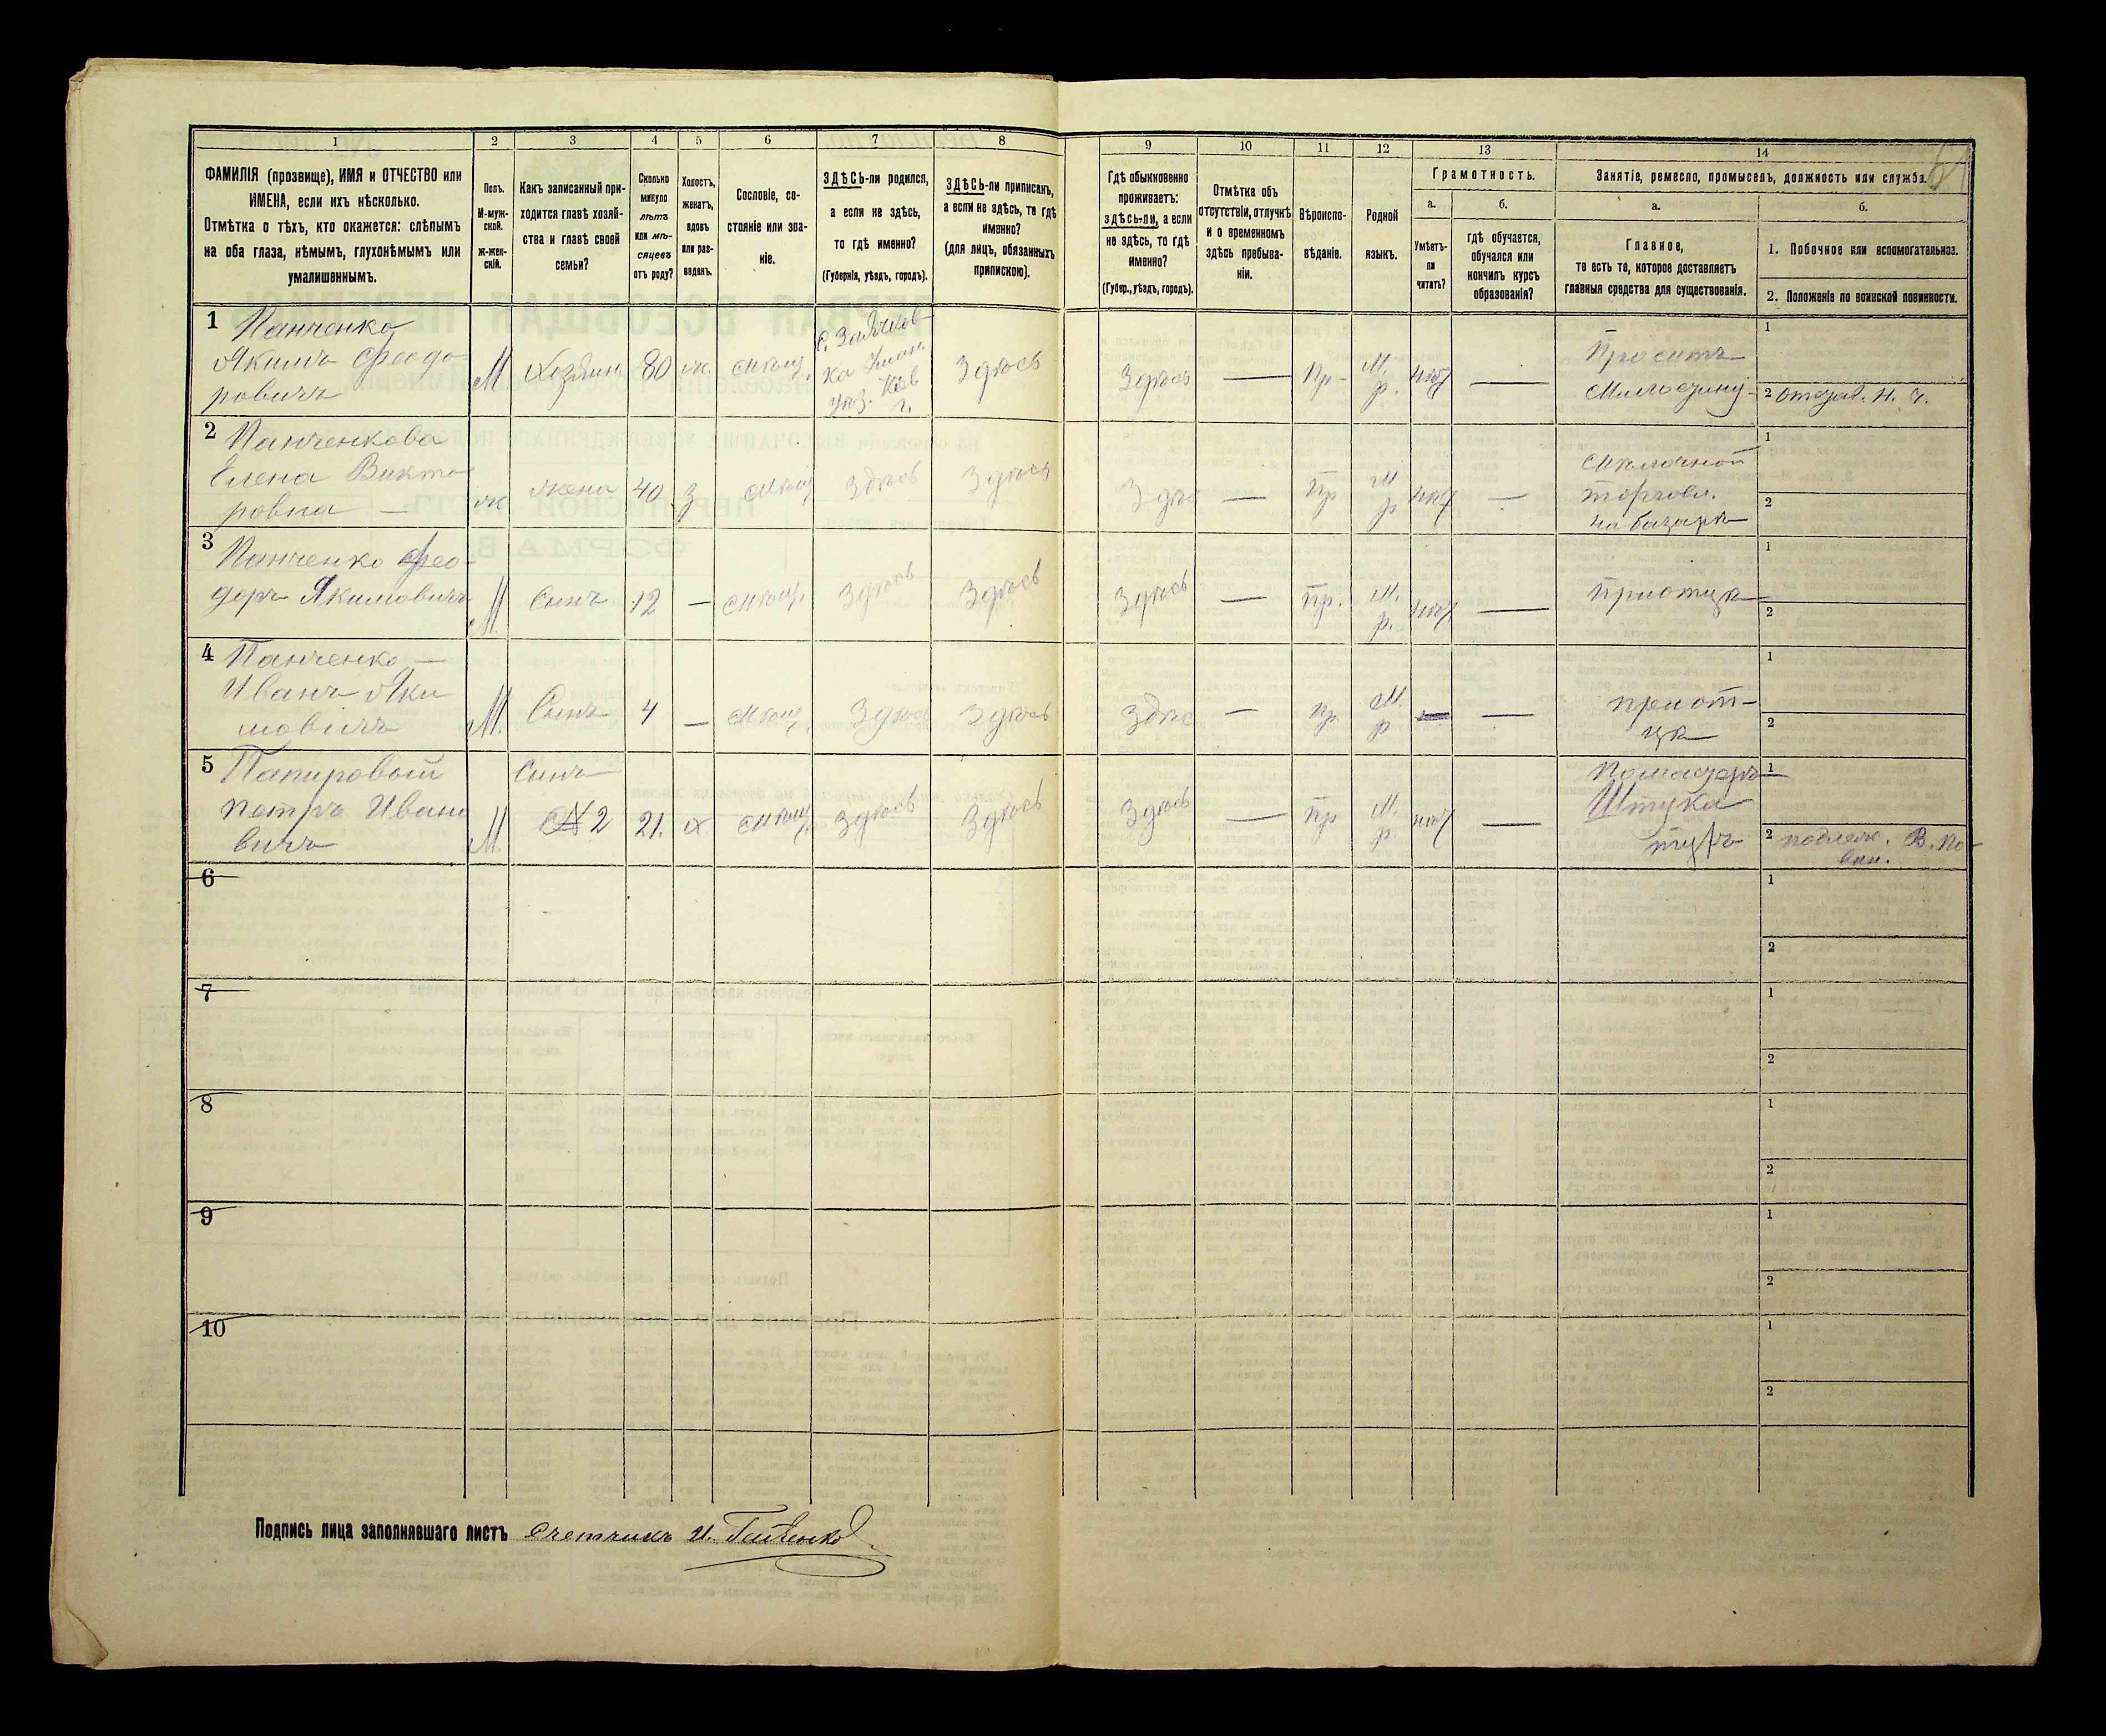 1 2 3 4 5 6 7 8 9 10 11 12 13 14
ФАМИЛІЯ (прозвище), ИМЯ и ОТЧЕСТВО или
ИМЕНА, если ихъ нѣсколько.
Отмѣтка о тѣхъ, кто окажется: слѣпымъ
на оба глаза, нѣмымъ, глухонѣмымъ или
умалишеннымъ.
Полъ.
М-муж-
ской.
ж-жен-
скій.
Какъ записанный при-
ходится главѣ хозяй-
ства и главѣ своей
семьи?
Сколько
минуло
лѣтъ
или мѣ-
сяцевъ
отъ роду?
Холостъ,
женатъ,
вдовъ
или раз-
веденъ.
Сословіе, со-
стояніе или зва-
ніе.
ЗДѢСЬ-ли родился,
а если не здѣсь,
то гдѣ именно?
(Губернія, уѣздъ, городъ).
ЗДѢСЬ-ли приписанъ,
а если не здѣсь, то гдѣ
именно?
(для лицъ, обязанныхъ
припискою).
Гдѣ обыкновенно
проживаетъ:
здѣсь-ли, а если
не здѣсь, то гдѣ
именно?
(Губер., уѣздъ, городъ).
Отмѣтка объ
отсутствіи, отлучкѣ
и о временномъ
здѣсь пребыва-
ніи.
Вѣроиспо-
вѣданіе.
Родной
языкъ.
Грамотность.
а.
Умѣетъ-
ли
читать?
б.
гдѣ обучается,
обучался или
кончилъ курсъ
образованія?
Занятіе, ремесло, промыселъ, должность или служба.
а.
Главное,
то есть то, которое доставляетъ
главныя средства для существованія.
б.
1. Побочное или вспомогательное.
2. Положеніе по воинской повинности.
1 Панченко
Якимъ Феодо
ровичъ
М Хозяин. 80 ж. мѣщ.
с.
ка Уман.
уѣз. Киев
г.
Здѣсь
Здѣсь — пр- М.
р.
нѣт —
Проситъ
Милостыну
1
2 отстав. н. ч.
2 Панченкова
Елена Викто
ровна —
ж жена 40 з мѣщ Здѣсь Здѣсь
Здѣс — пр М
р
нѣт —
Мѣлочной
торговл.
на базарѣ
1
2
3 Панченко Фео-
доръ Якимовичъ
М Сынъ 12 — мѣщ. Здѣсь Здѣсь
Здѣсь — пр. М.
р.
нѣт —
при отцѣ
1
2
4 Панченко —
Иванъ Яки
мовичъ
М. Сынъ 4 — мѣщ. Здѣсь Здѣсь
Здѣс — пр М.
р
—
при от-
цѣ
1
2
5 Папировой
Петръ Ивано
вичъ
М. Сынъ
№ 2
21. х мѣщ. Здѣсь Здѣсь
Здѣсь — пр М.
р.
нѣт —
Штука
туръ
1
2 подлеж. В. по-
вин.
6
1
2
7
1
2
8
1
2
9
1
2
10
1
2
Подпись лица заполнявшаго листъ Счетчикъ И.